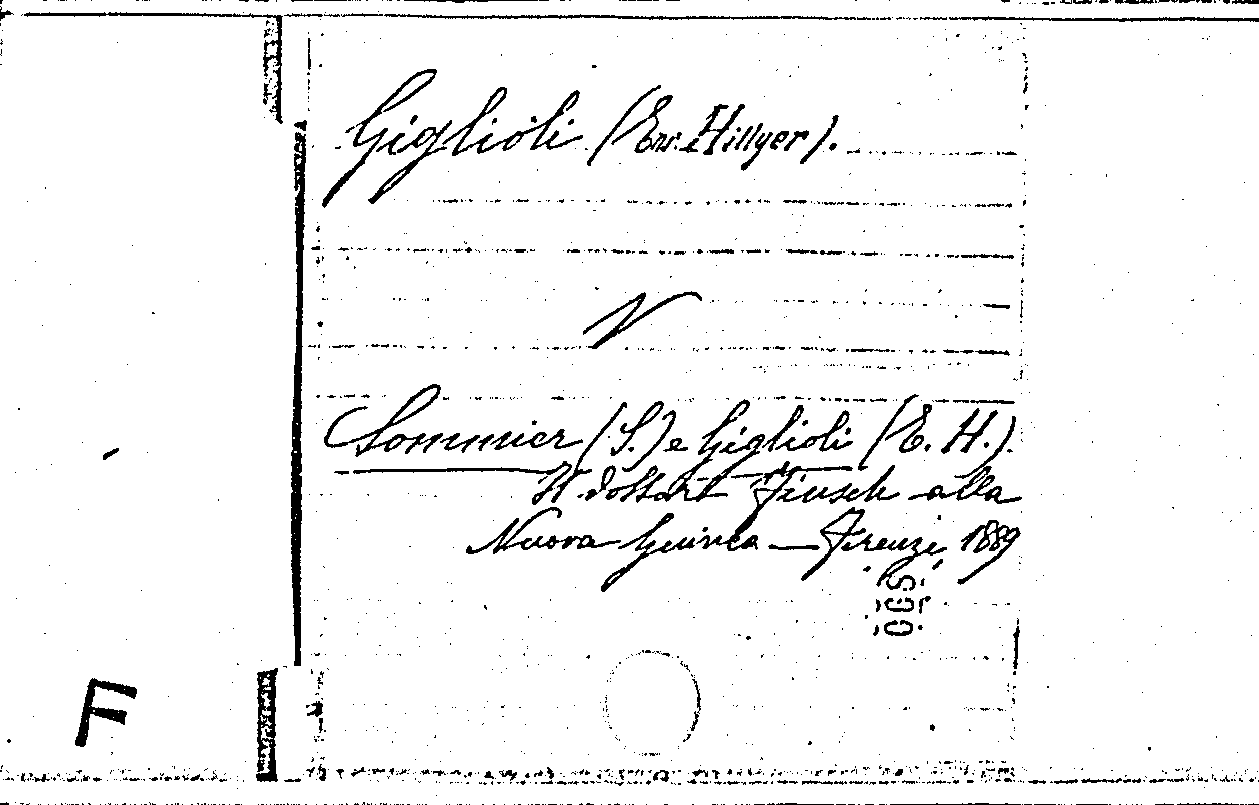 Giglioli (En. Hillyer).
V
Sommier (S.) e Giglioli (E. H.).
Il dottor Finsch alla
Nuova Guinea — Firenze, 1889
F